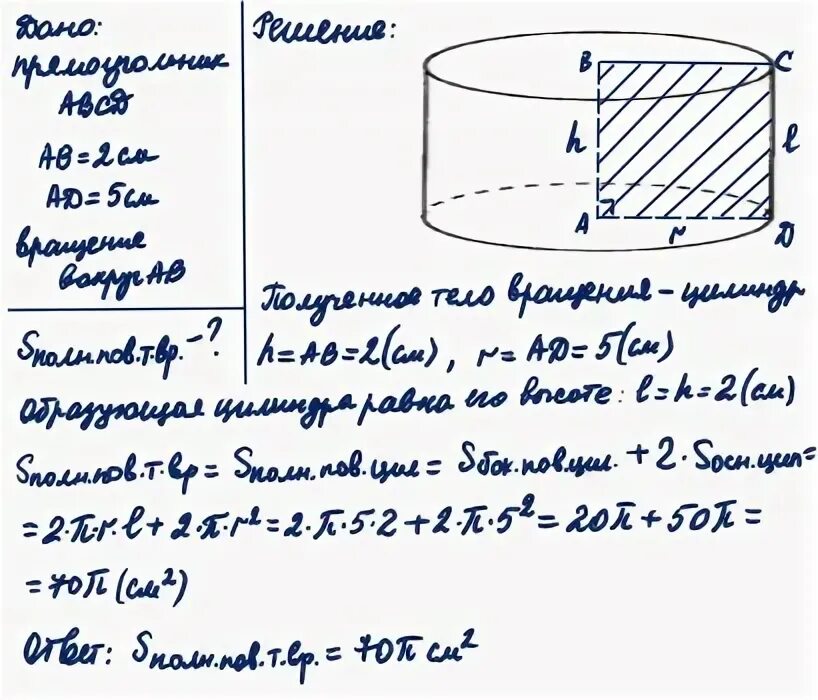 Дано:
прямоугольник
ABCD
AB=2см
AD=5см
вращение
вокруг AB
Sполн.пов.т.вр.-?
Решение:
B
C
h
l
A
r
D
Полученное тело вращения - цилиндр
h=AB=2(см), r=AD=5(см)
Образующая цилиндра равна его высоте: l=h=2(см)
Sполн.пов.т.вр=Sполн.пов.цил=Sбок.пов.цил.+2·Sосн.цил=
=2·π·r·l+2·π·r²=2·π·5·2+2·π·5²=20π+50π=
=70π(см²)
Ответ: Sполн.пов.т.вр.=70π см²